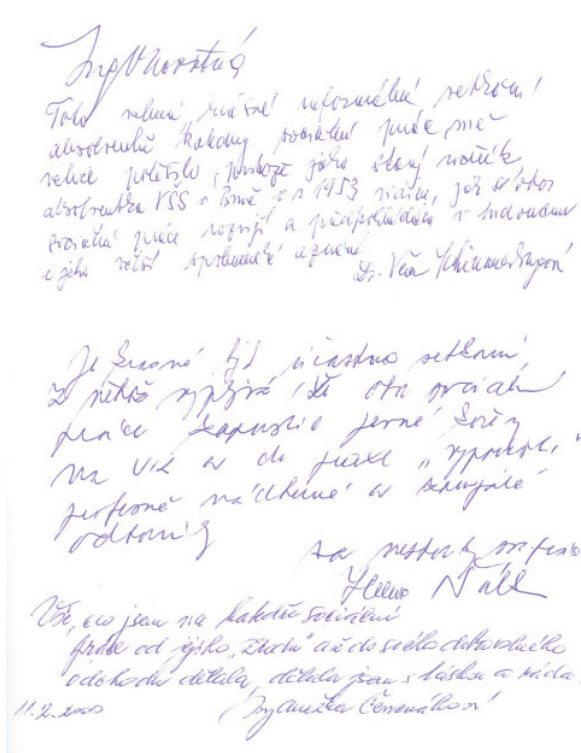 Ing Novotná
Toto velmi krásné neformální setkání
absolventů katedry sociální práce mě
velice potěšilo, protože jako starý
absolventka VŠS v Brně v r. 1953 vidím, jak se obor
sociální práce rozvíjí a předpokládám v budoucnu
i jeho větší společenské uznání
Dr. Věra
Je krásné být účastna setkání
z něhož vyplývá, že obor sociální
práce zapustil pevné kořeny
na UK a do praxe "
profesně nadšené a zanícené
odborníky
za
Helena
Vše, co jsem na katedře sociální
práce od jejího "zrodu" až do svého dobrovolného
odchodu dělala, dělala jsem s láskou a ráda.
11.2.2000 Červenáková